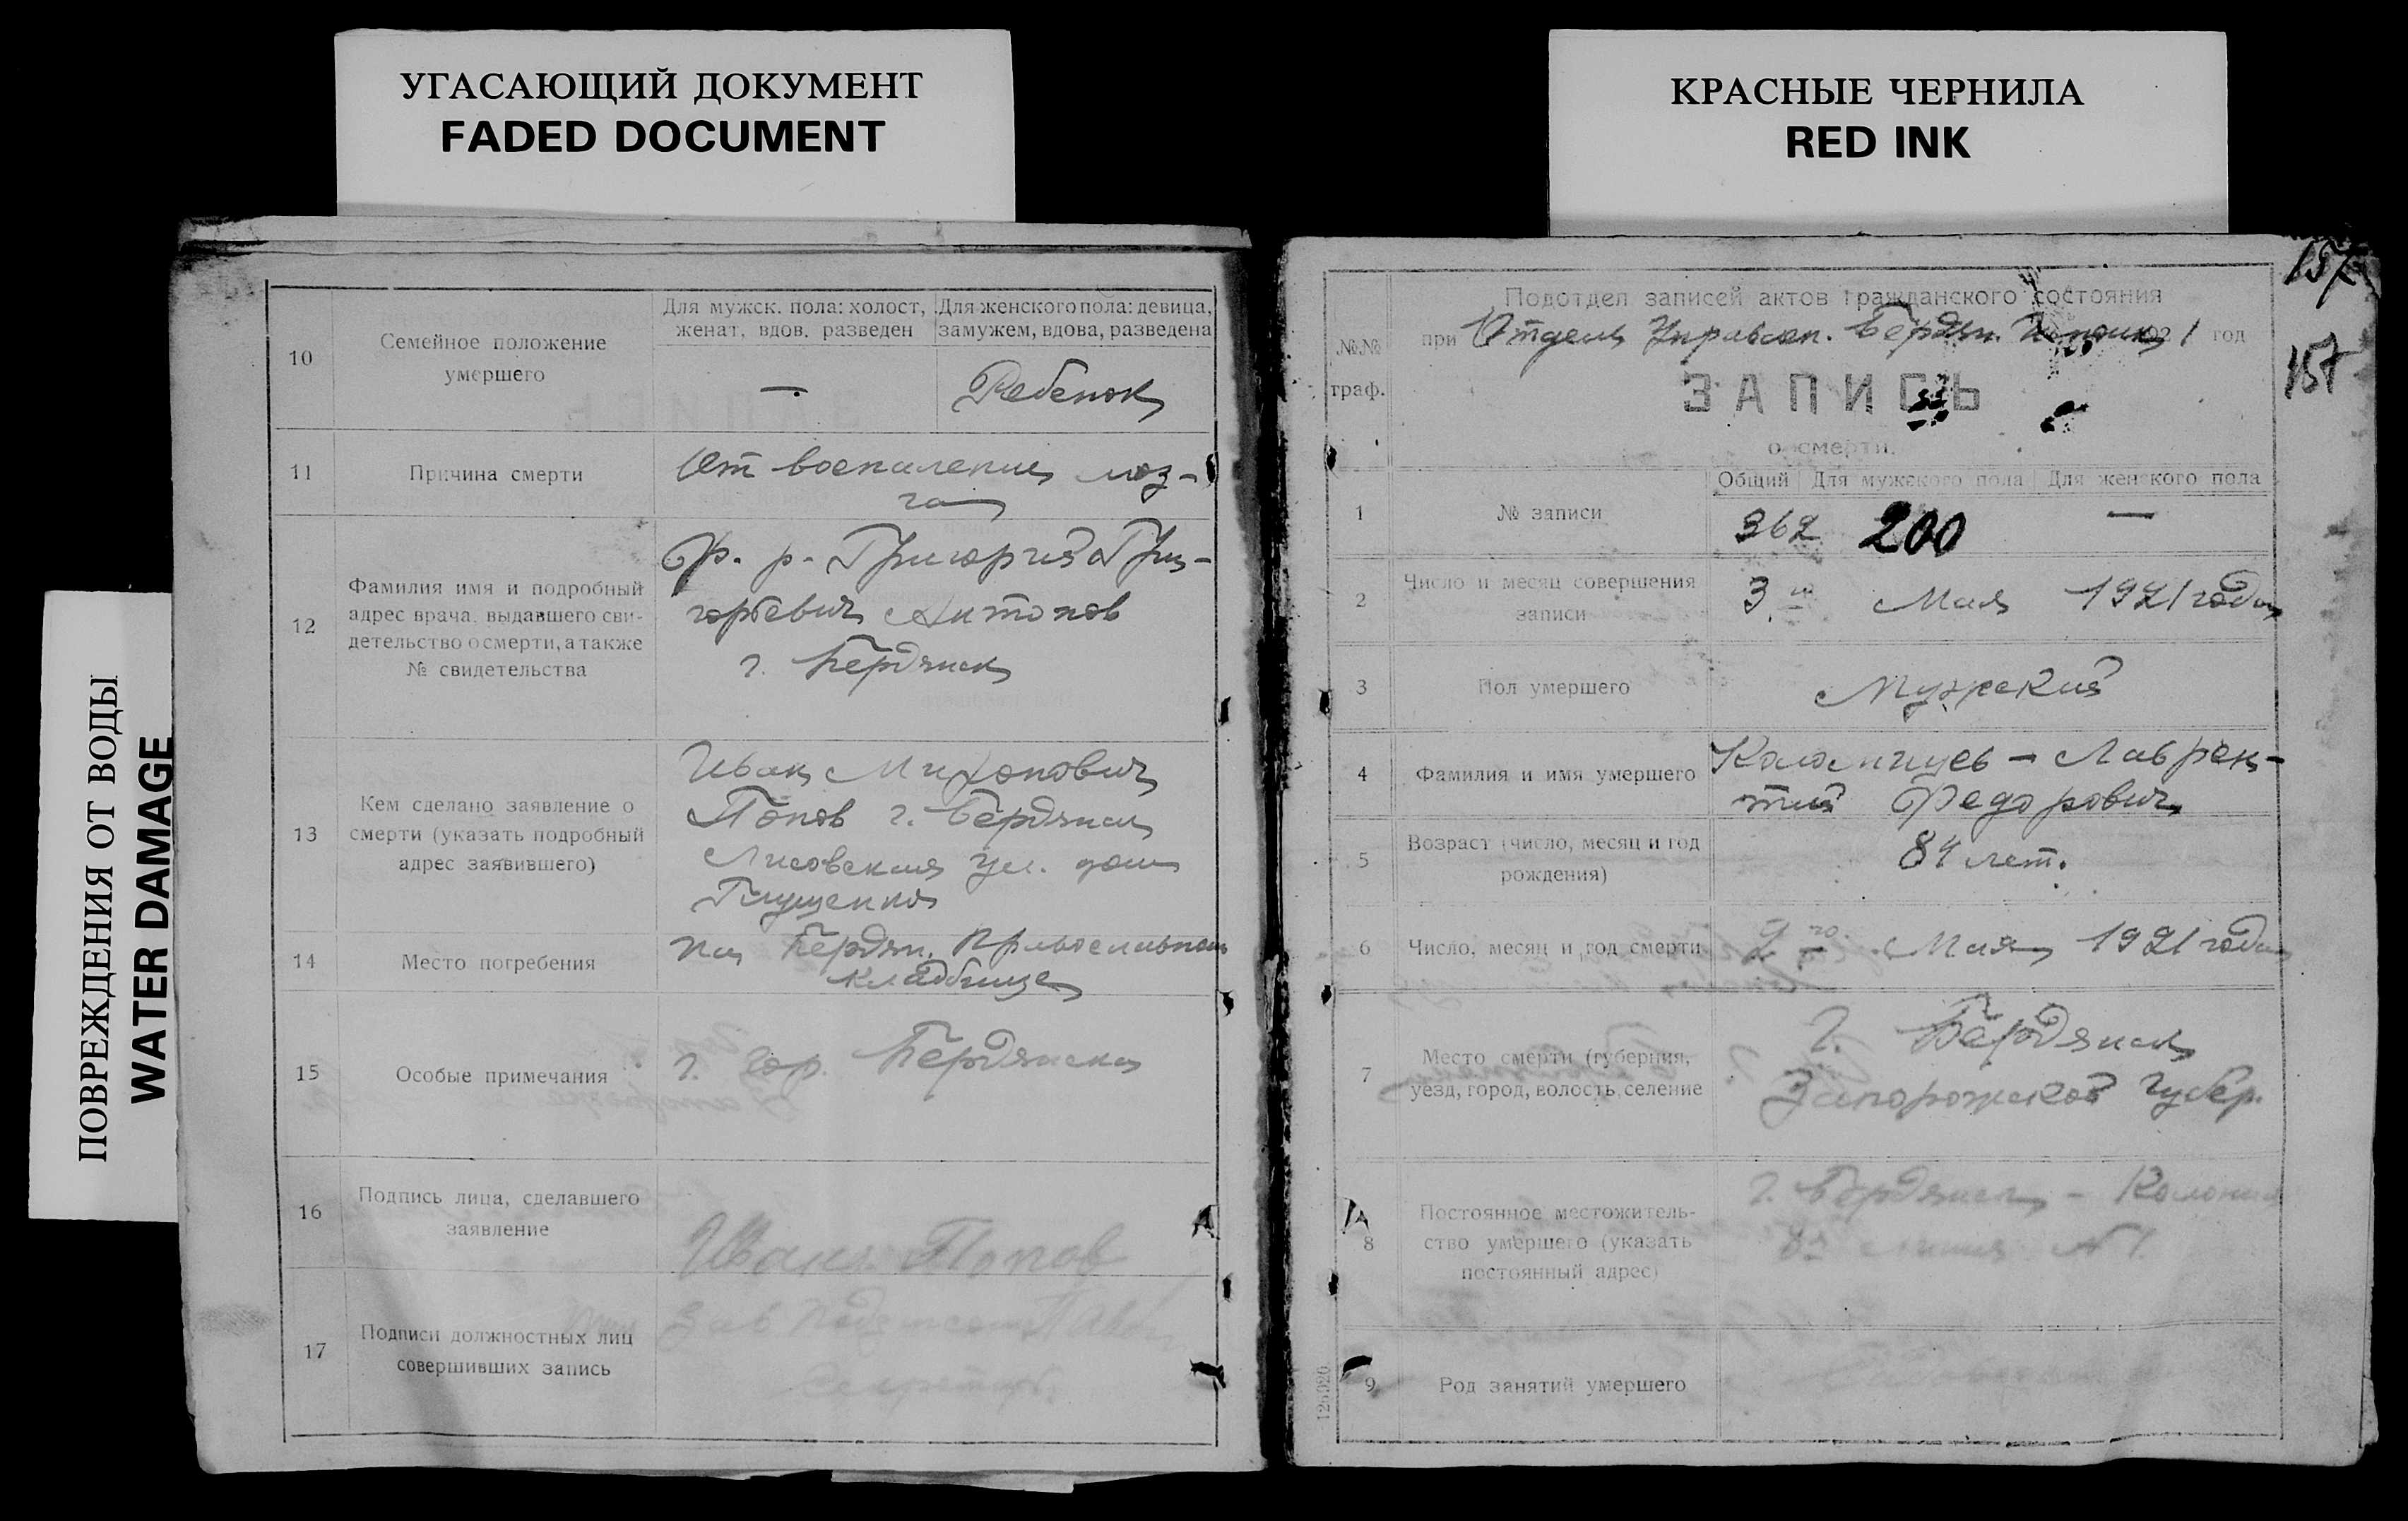 УГАСАЮЩИЙ ДОКУМЕНТ
FADED DOCUMENT
КРАСНЫЕ ЧЕРНИЛА
RED INK
ПОВРЕЖДЕНИЯ ОТ ВОДЫ
WATER DAMAGE
10
Семейное положение
умершего
Для мужск. пола: холост,
женат, вдов, разведен
Для женского пола: девица,
замужем, вдова, разведена
—
Ребенок
11
Причина смерти
От воспаления моз-
га
12
Фамилия имя и подробный
адрес врача, выдавшего сви-
детельство о смерти, а также
№ свидетельства
Григорий Гри-
горьевич Антонов
г. Бердянск
13
Кем сделано заявление о
смерти (указать подробный
адрес заявившего)
Иван
Попов г. Бердянск
Лисовская ул. дом
Глущенко
14
Место погребения
На Бердян. Православном
кладбище
15
Особые примечания
г. гор. Бердянска
16
Подпись лица, сделавшего
заявление
Иван Попов
17
Подписи должностных лиц
совершивших запись
Зав
157
157
№№
граф.
Подотдел записей актов гражданского состояния
при Отделе Управлен. Бердян. 1921 год
ЗАПИСЬ
о смерти.
1
№ записи
Общий
Для мужского пола
Для женского пола
362
200
—
2
Число и месяц совершения
записи
3 го Мая 1921 года
3
Пол умершего
Мужской
4
Фамилия и имя умершего
Лаврен-
тий Федорович
5
Возраст (число, месяц и год
рождения)
84 лет.
6
Число, месяц и год смерти
2 го Мая 1921 года
7
Место смерти (губерния,
уезд, город, волость, селение
г. Бердянск
Запорожской губер.
8
Постоянное местожитель-
ство умершего (указать
постоянный адрес)
г. Бердянск - Колония
8я линия № 1.
9
Род занятий умершего